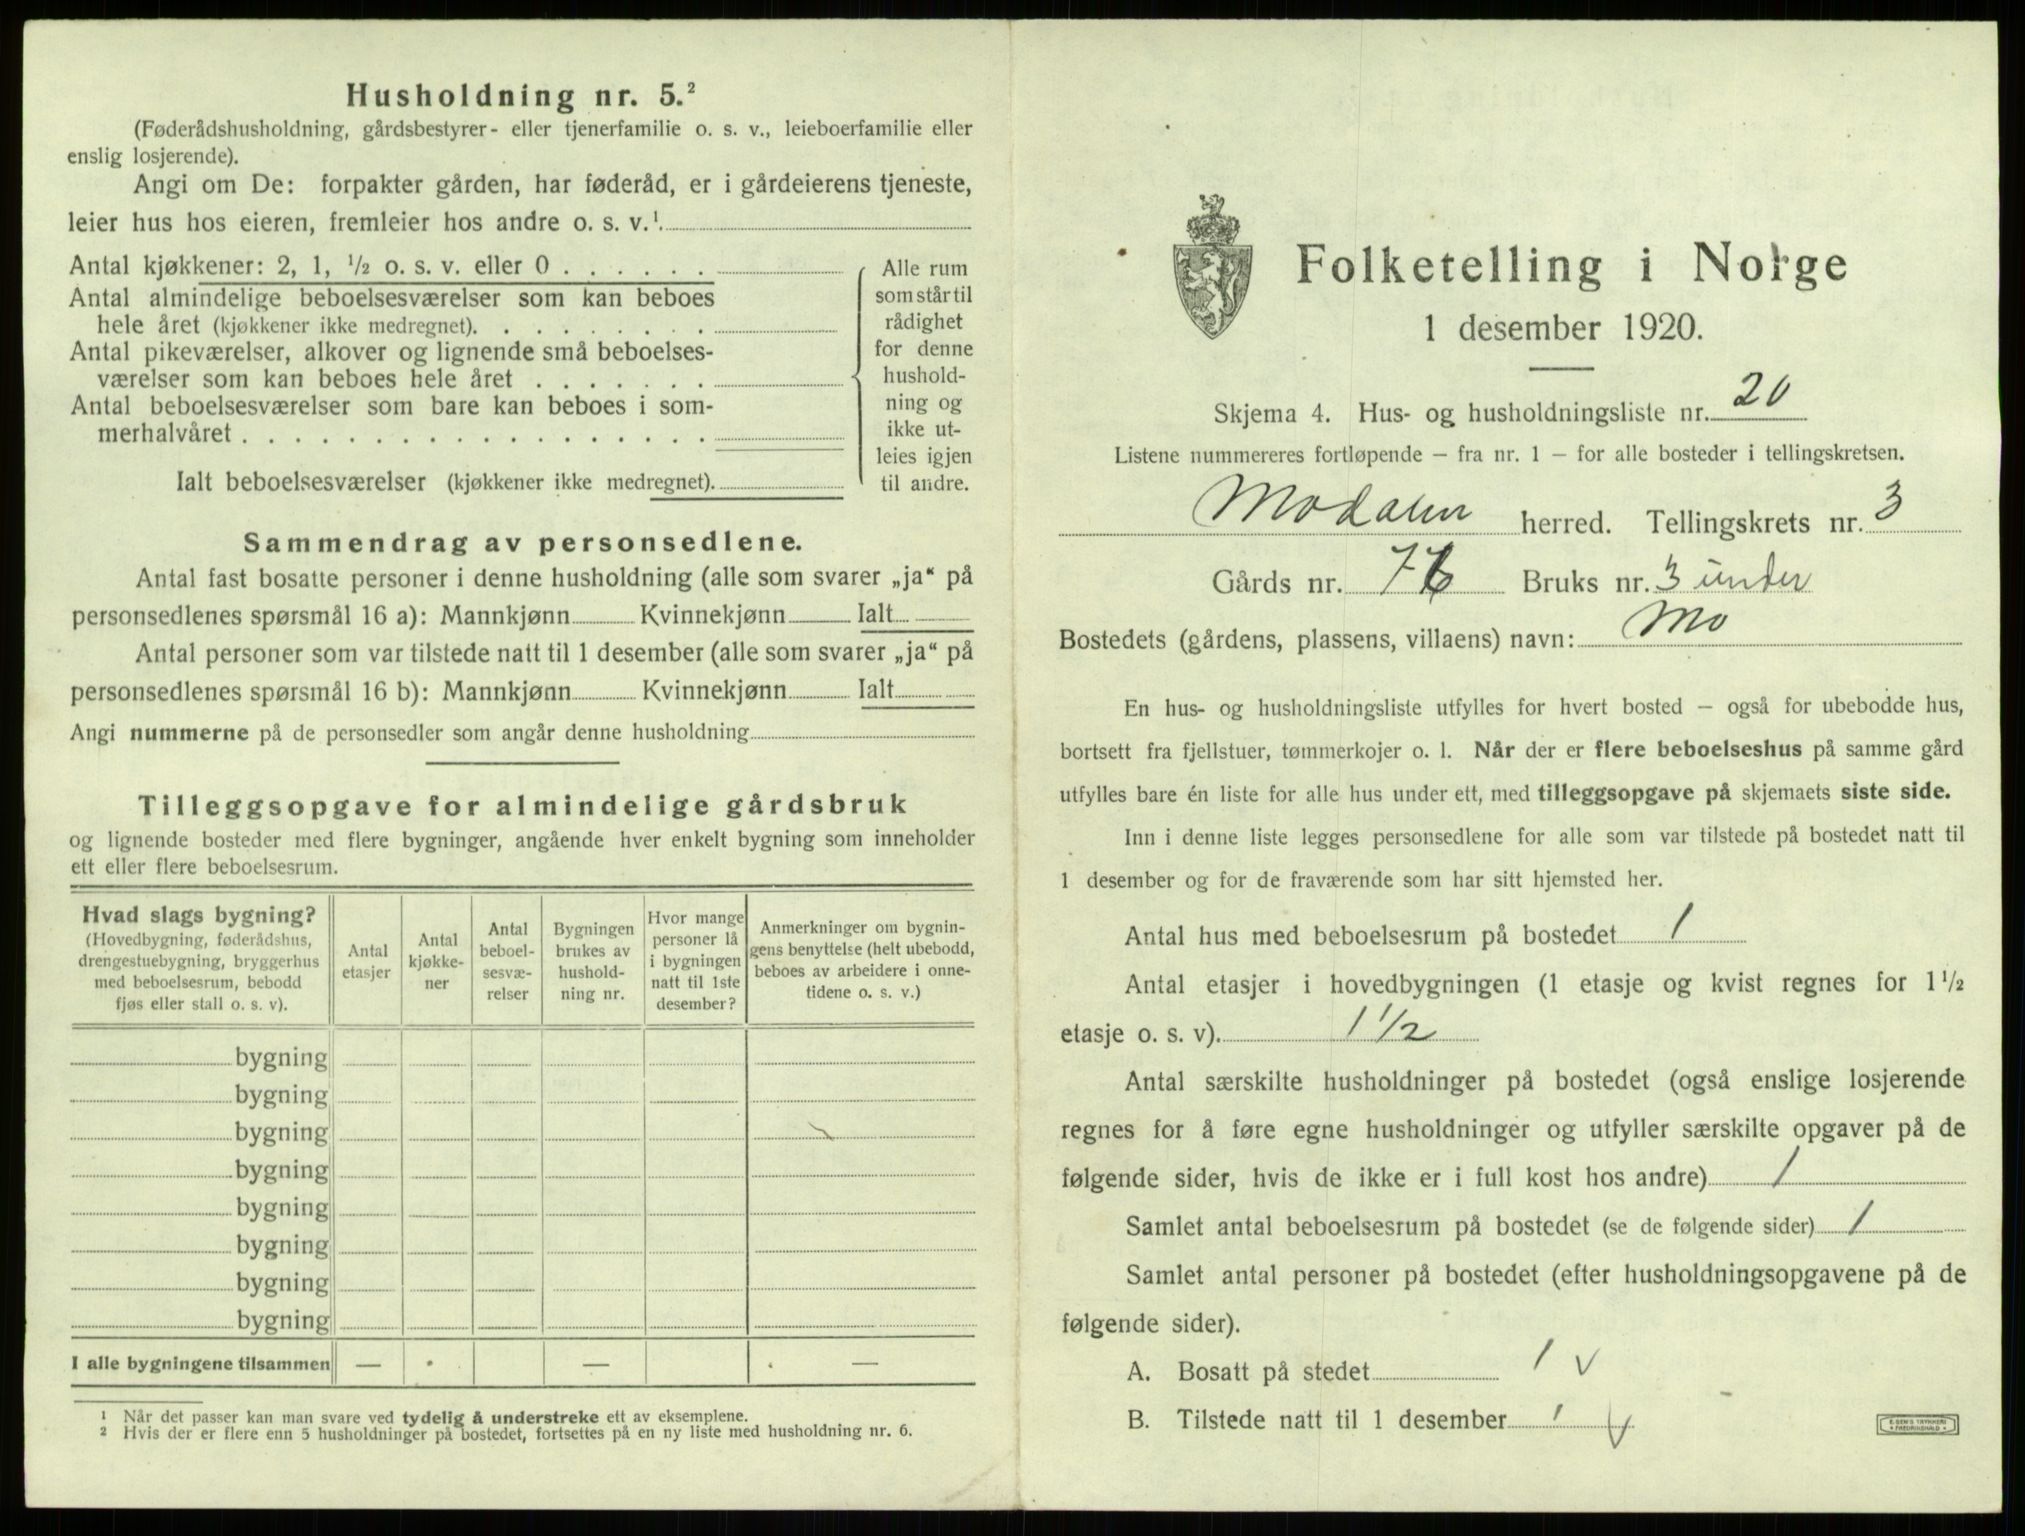 Husholdning nr. 5.²
(Føderådshusholdning, gårdsbestyrer- eller tjenerfamilie o. s. v., leieboerfamilie eller
enslig losjerende).
Angi om De: forpakter gården, har føderåd, er i gårdeierens tjeneste,
leier hus hos eieren, fremleier hos andre o. s. v.¹.
Antal kjøkkener: 2, 1, ½ o. s. v. eller 0 . . . . . .
Antal almindelige beboelsesværelser som kan beboes
hele året (kjøkkener ikke medregnet). . . . . . . . .
Antal pikeværelser, alkover og lignende små beboelses-
værelser som kan beboes hele året . . . . . . .
Antal beboelsesværelser som bare kan beboes i som-
merhalvåret . . . . . . . . . . . . . . . . . .
Ialt beboelsesværelser (kjøkkener ikke medregnet).
Alle rum
som står til
rådighet
for denne
hushold-
ning og
ikke ut-
leies igjen
til andre.
Sammendrag av personsedlene.
Antal fast bosatte personer i denne husholdning (alle som svarer „ja“ på
personsedlenes spørsmål 16 a): Mannkjønn Kvinnekjønn Ialt
Antal personer som var tilstede natt til 1 desember (alle som svarer „ja“ på
personsedlenes spørsmål 16 b): Mannkjønn Kvinnekjønn Ialt
Angi nummerne på de personsedler som angår denne husholdning
Tilleggsopgave for almindelige gårdsbruk
og lignende bosteder med flere bygninger, angående hver enkelt bygning som inneholder
ett eller flere beboelsesrum.
Hvad slags bygning?
(Hovedbygning, føderådshus,
drengestuebygning, bryggerhus
med beboelsesrum, bebodd
fjøs eller stall o. s. v).
Antal
etasjer
Antal
kjøkke-
ner
Antal
beboel-
sesvæ-
relser
Bygningen
brukes av
hushold-
ning nr.
Hvor mange
personer lå
i bygningen
natt til 1ste
desember?
Anmerkninger om bygnin-
gens benyttelse (helt ubebodd,
beboes av arbeidere i onne-
tidene o. s. v.)
bygning
bygning
bygning
bygning
bygning
bygning
bygning
bygning
I alle bygningene tilsammen — — —
¹ Når det passer kan man svare ved tydelig å understreke ett av eksemplene.
² Hvis der er flere enn 5 husholdninger på bostedet, fortsettes på en ny liste med husholdning nr. 6.
Folketelling i Norge
1 desember 1920.
Skjema 4. Hus- og husholdningsliste nr. 20
Listene nummereres fortløpende — fra nr. 1 — for alle bosteder i tellingskretsen.
Modalen herred. Tellingskrets nr. 3
Gårds nr. 76 Bruks nr. 3 under
Bostedets (gårdens, plassens, villaens) navn: Mo
En hus- og husholdningsliste utfylles for hvert bosted — også for ubebodde hus,
bortsett fra fjellstuer, tømmerkojer o. l. Når der er flere beboelseshus på samme gård
utfylles bare én liste for alle hus under ett, med tilleggsopgave på skjemaets siste side.
Inn i denne liste legges personsedlene for alle som var tilstede på bostedet natt til
1 desember og for de fraværende som har sitt hjemsted her.
Antal hus med beboelsesrum på bostedet 1
Antal etasjer i hovedbygningen (1 etasje og kvist regnes for 1½
etasje o. s. v). 1 1/2
Antal særskilte husholdninger på bostedet (også enslige losjerende
regnes for å føre egne husholdninger og utfyller særskilte opgaver på de
følgende sider, hvis de ikke er i full kost hos andre) 1
Samlet antal beboelsesrum på bostedet (se de følgende sider) 1
Samlet antal personer på bostedet (efter husholdningsopgavene på de
følgende sider).
A. Bosatt på stedet 1 v
B. Tilstede natt til 1 desember 1 v